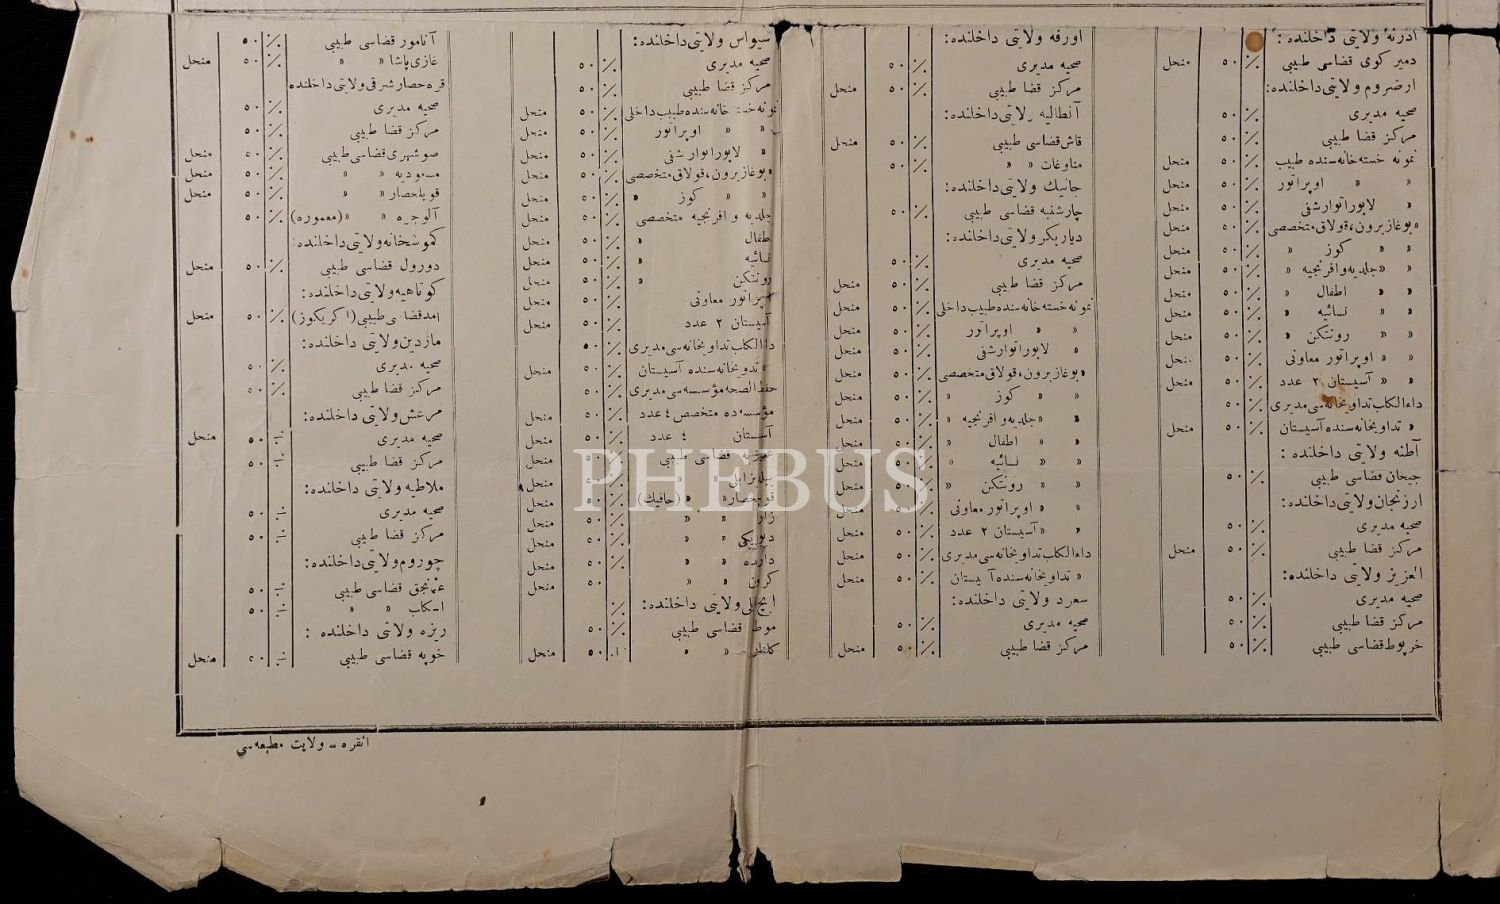 ادرنه ولایتی داخلنده :
دمیر کوی قضاسی طبیبی ٪ ٥٠ منحل
ارضروم ولایتی داخلنده :
صحیه مدیری ٪ ٥٠
مرکز قضا طبیبی ٪ ٥٠
نمونه خسته خانه سنده طبیب ٪ ٥٠ منحل
» » اوپراتور ٪ ٥٠ منحل
» لابوراتوارشفی ٪ ٥٠ منحل
» بوغاز برون، قولاق متخصصی ٪ ٥٠ منحل
» » کوز » ٪ ٥٠ منحل
» » جلدیه و افرنجیه » ٪ ٥٠ منحل
» » اطفال » ٪ ٥٠ منحل
» » نسائیه » ٪ ٥٠ منحل
» » رونتکن » ٪ ٥٠ منحل
» » اوپراتور معاونی ٪ ٥٠ منحل
» » آسیستان ٢ عدد ٪ ٥٠ منحل
داءالکلب تداویخانه سی مدیری ٪ ٥٠
» تداویخانه سنده آسیستان ٪ ٥٠ منحل
آطنه ولایتی داخلنده :
جیحان قضاسی طبیبی ٪ ٥٠
ارزنجان ولایتی داخلنده :
صحیه مدیری ٪ ٥٠
مرکز قضا طبیبی ٪ ٥٠ منحل
العزیز ولایتی داخلنده :
صحیه مدیری ٪ ٥٠
مرکز قضا طبیبی ٪ ٥٠
خرپوط قضاسی طبیبی ٪ ٥٠
اورفه ولایتی داخلنده :
صحیه مدیری ٪ ٥٠
مرکز قضا طبیبی ٪ ٥٠ منحل
آنطالیه ولایتی داخلنده :
قاش قضاسی طبیبی ٪ ٥٠ منحل
مناوغات » » ٪ ٥٠
جانیك ولایتی داخلنده :
چارشنبه قضاسی طبیبی ٪ ٥٠
دیاربکر ولایتی داخلنده :
صحیه مدیری ٪ ٥٠
مرکز قضا طبیبی ٪ ٥٠ منحل
نمونه خسته خانه سنده طبیب داخلی ٪ ٥٠ منحل
» » اوپراتور ٪ ٥٠ منحل
» لابوراتوارشفی ٪ ٥٠ منحل
» بوغاز برون، قولاق متخصصی ٪ ٥٠ منحل
» » کوز » ٪ ٥٠ منحل
» » جلدیه و افرنجیه » ٪ ٥٠ منحل
» » اطفال » ٪ ٥٠ منحل
» » نسائیه » ٪ ٥٠ منحل
» » رونتکن » ٪ ٥٠ منحل
» » اوپراتور معاونی ٪ ٥٠ منحل
» » آسیستان ٢ عدد ٪ ٥٠ منحل
داءالکلب تداویخانه سی مدیری ٪ ٥٠ منحل
» تداویخانه سنده آسیستان ٪ ٥٠ منحل
سعرد ولایتی داخلنده :
صحیه مدیری ٪ ٥٠
مرکز قضا طبیبی ٪ ٥٠ منحل
سیواس ولایتی داخلنده :
صحیه مدیری ٪ ٥٠
مرکز قضا طبیبی ٪ ٥٠
نمونه خسته خانه سنده طبیب داخلی ٪ ٥٠ منحل
» » اوپراتور ٪ ٥٠ منحل
» لابوراتوار شفی ٪ ٥٠ منحل
» بوغاز برون، قولاق متخصصی ٪ ٥٠ منحل
» » کوز » ٪ ٥٠ منحل
جلدیه و افرنجیه متخصصی ٪ ٥٠ منحل
اطفال » ٪ ٥٠ منحل
نسائیه » ٪ ٥٠ منحل
رونتکن » ٪ ٥٠ منحل
اوپراتور معاونی ٪ ٥٠ منحل
آسیستان ٢ عدد ٪ ٥٠ منحل
داءالکلب تداویخانه سی مدیری ٪ ٥٠
» تدویخانه سنده آسیستان ٪ ٥٠ منحل
حفظ الصحه مؤسسه سی مدیری ٪ ٥٠
مؤسسه ده متخصص ٤ عدد ٪ ٥٠ منحل
آسیستان ٤ عدد ٪ ٥٠ منحل
عزیزیه قضاسی طبیبی ٪ ٥٠ منحل
٪ ٥٠ منحل
قوچحصار » » (حافیك) ٪ ٥٠ منحل
زارا » » ٪ ٥٠ منحل
دیوریکی » » ٪ ٥٠ منحل
دارنده » » ٪ ٥٠ منحل
كرون » » ٪ ٥٠ منحل
ایچ ایلی ولایتی داخلنده : ٪
موط قضاسی طبیبی ٪ ٥٠
کلنار » » ٥٠ منحل
آنامور قضاسی طبیبی ٪ ٥٠
غازی پاشا » » ٪ ٥٠ منحل
قره حصار شرقی ولایتی داخلنده
صحیه مدیری ٪ ٥٠
مرکز قضا طبیبی ٪ ٥٠
صوشهری قضاسی طبیبی ٪ ٥٠ منحل
مسعودیه » » ٪ ٥٠ منحل
قویلحصار » » ٪ ٥٠ منحل
آلوجره » » (معموره) ٪ ٥٠
کموشخانه ولایتی داخلنده :
دورول قضاسی طبیبی ٪ ٥٠ منحل
کوتاهیه ولایتی داخلنده :
امد قضاسی طبیبی (اکریکوز) ٪ ٥٠ منحل
ماردین ولایتی داخلنده :
صحیه مدیری ٪ ٥٠
مرکز قضا طبیبی ٪ ٥٠
مرعش ولایتی داخلنده :
صحیه مدیری ٪ ٥٠ منحل
مرکز قضا طبیبی ٪ ٥٠
ملاطیه ولایتی داخلنده :
صحیه مدیری ٪ ٥٠
مرکز قضا طبیبی ٪ ٥٠
چوروم ولایتی داخلنده :
عثمانجق قضاسی طبیبی ٪ ٥٠
اسکلب » » ٪ ٥٠
ریزه ولایتی داخلنده :
خوپه قضاسی طبیبی ٪ ٥٠ منحل
انقره ـ ولایت مطبعه سی
PHEBUS